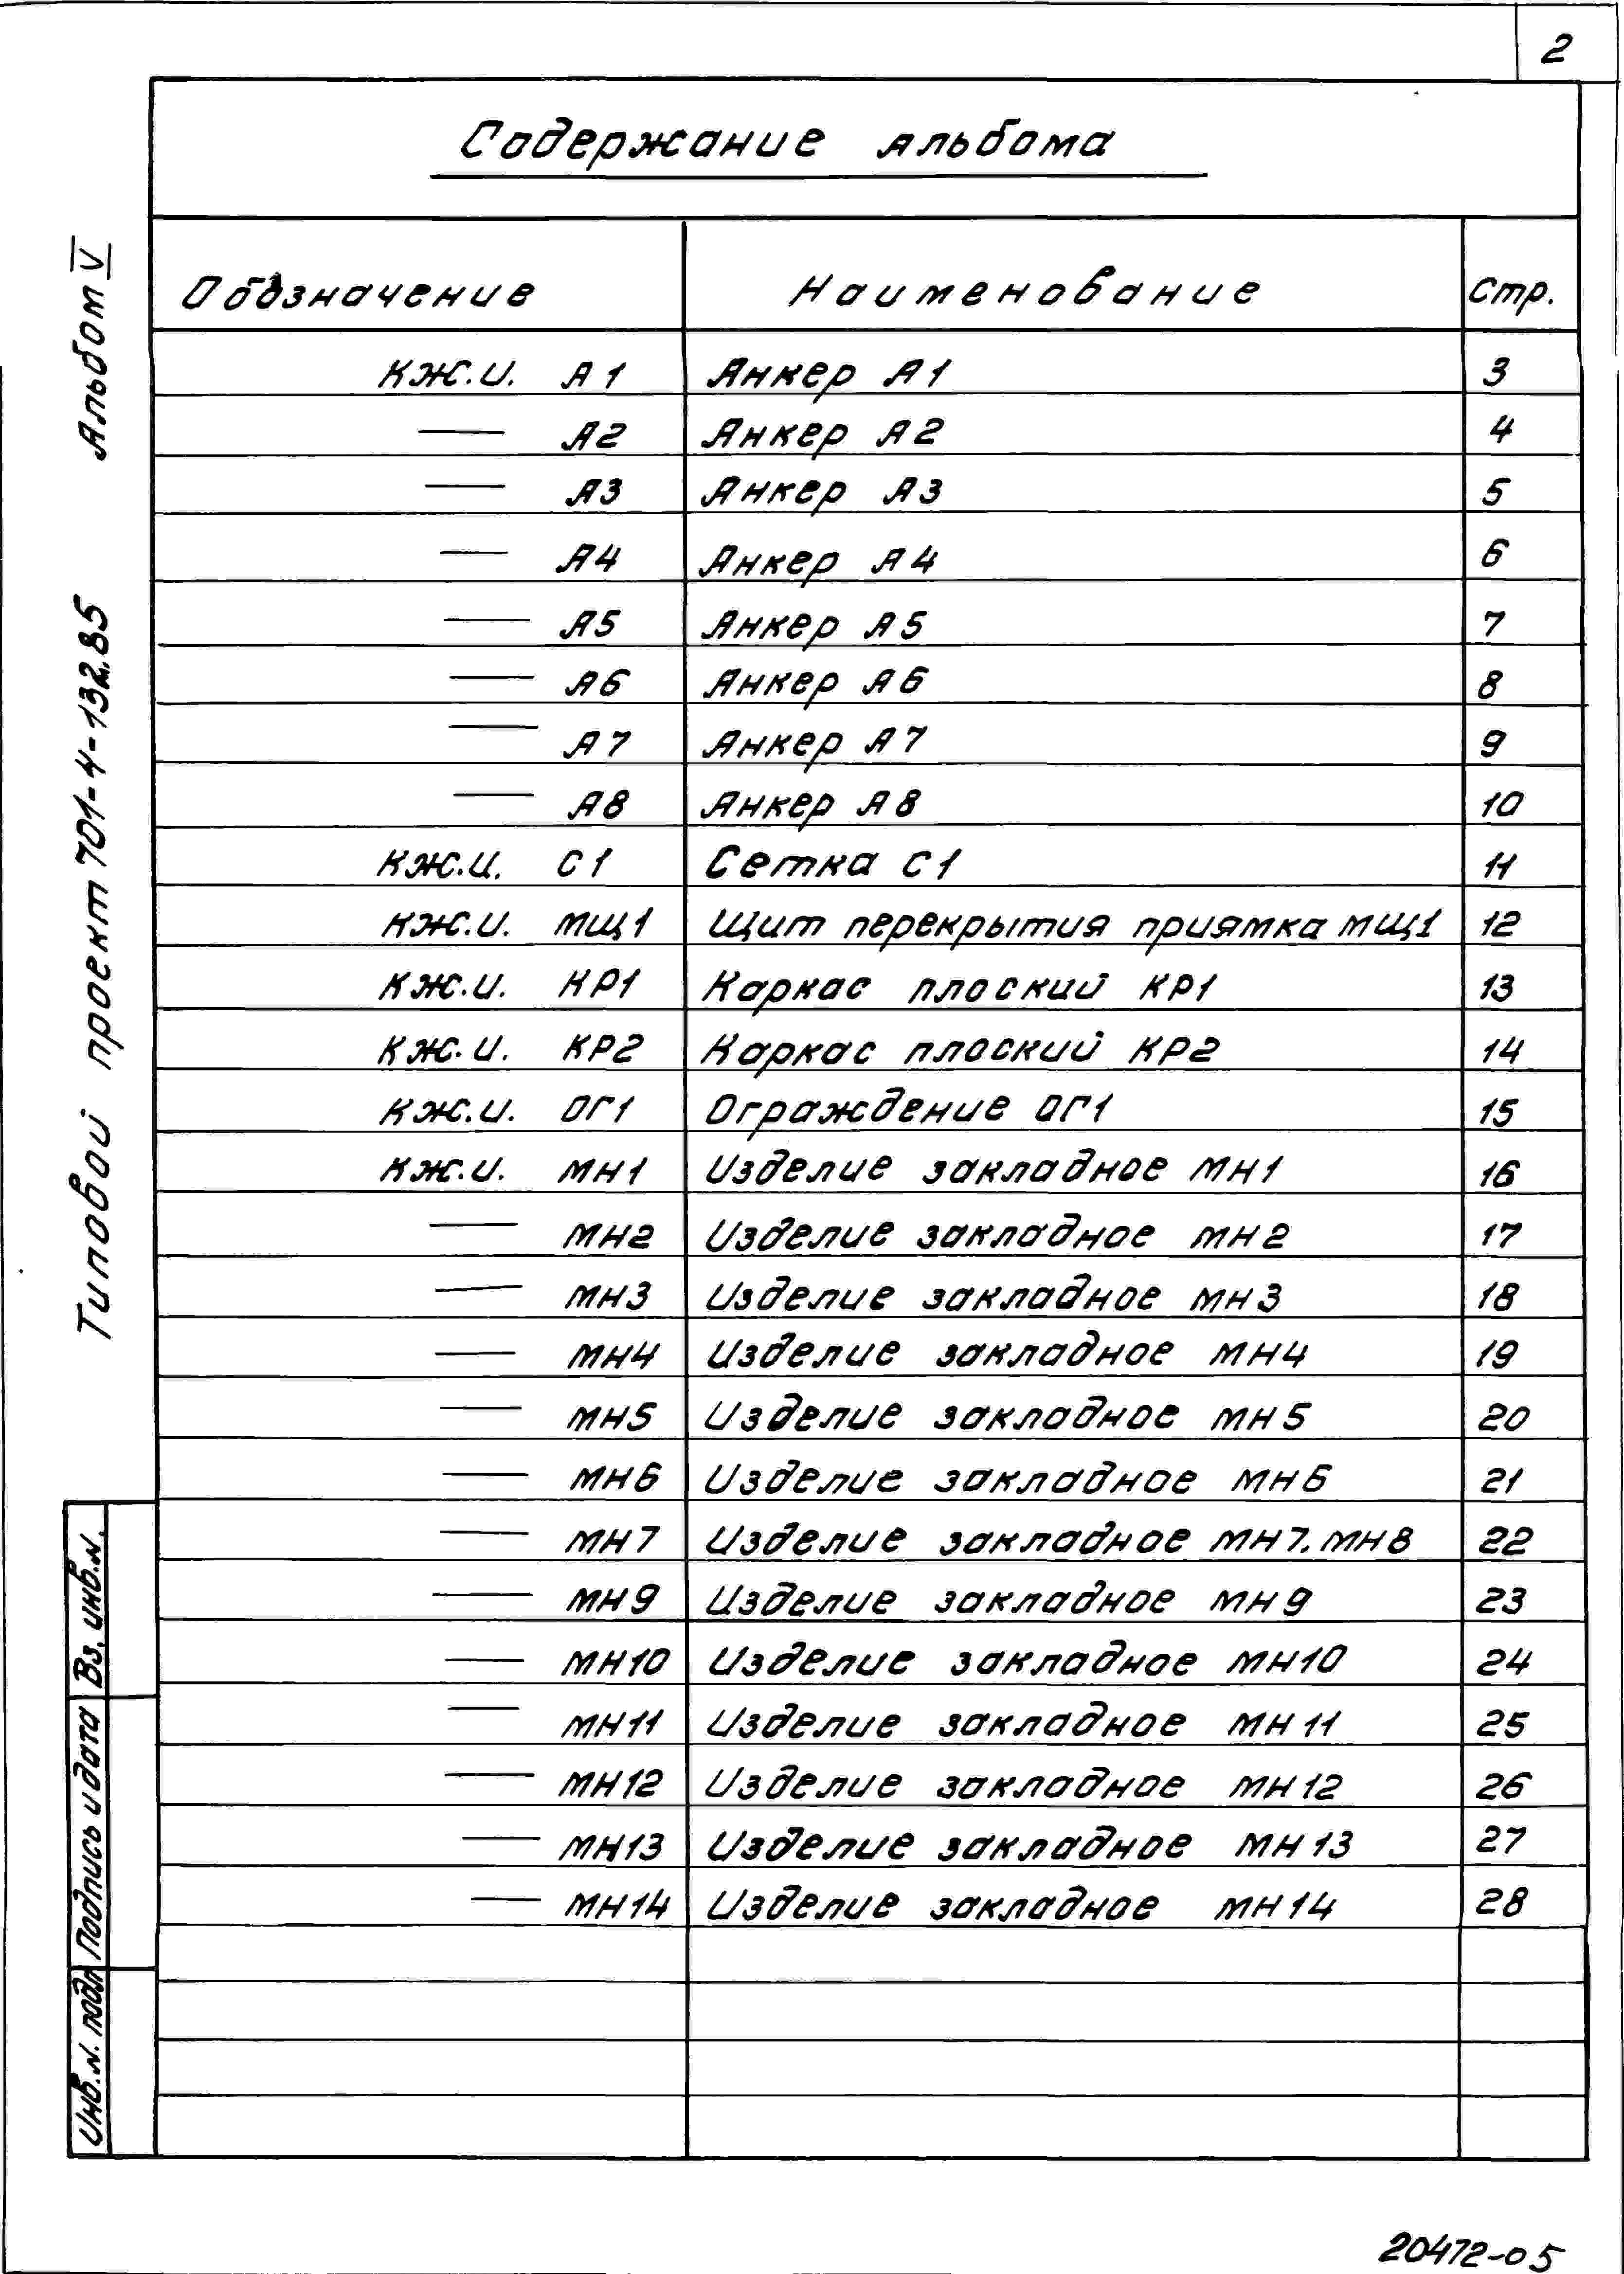 2
Содержание альбома
Обозначение Наименование Стр.
КЖ.И. А1 Анкер А1 3
— А2 Анкер А2 4
— А3 Анкер А3 5
— А4 Анкер А4 6
— А5 Анкер А5 7
— А6 Анкер А6 8
— А7 Анкер А7 9
— А8 Анкер А8 10
КЖ.И. С1 Сетка С1 11
КЖ.И. МЩ1 Щит перекрытия приямка МЩ1 12
КЖ.И. КР1 Каркас плоский КР1 13
КЖ.И. КР2 Каркас плоский КР2 14
КЖ.И. ОГ1 Ограждение ОГ1 15
КЖ.И. МН1 Изделие закладное МН1 16
— МН2 Изделие закладное МН2 17
— МН3 Изделие закладное МН3 18
— МН4 Изделие закладное МН4 19
— МН5 Изделие закладное МН5 20
— МН6 Изделие закладное МН6 21
— МН7 Изделие закладное МН7. МН8 22
— МН9 Изделие закладное МН9 23
— МН10 Изделие закладное МН10 24
— МН11 Изделие закладное МН11 25
— МН12 Изделие закладное МН12 26
— МН13 Изделие закладное МН13 27
— МН14 Изделие закладное МН14 28
Типовой проект 701-4-132.85 Альбом V
Инв.N. подл Подпись и дата Вз. инв.N.
20472-05